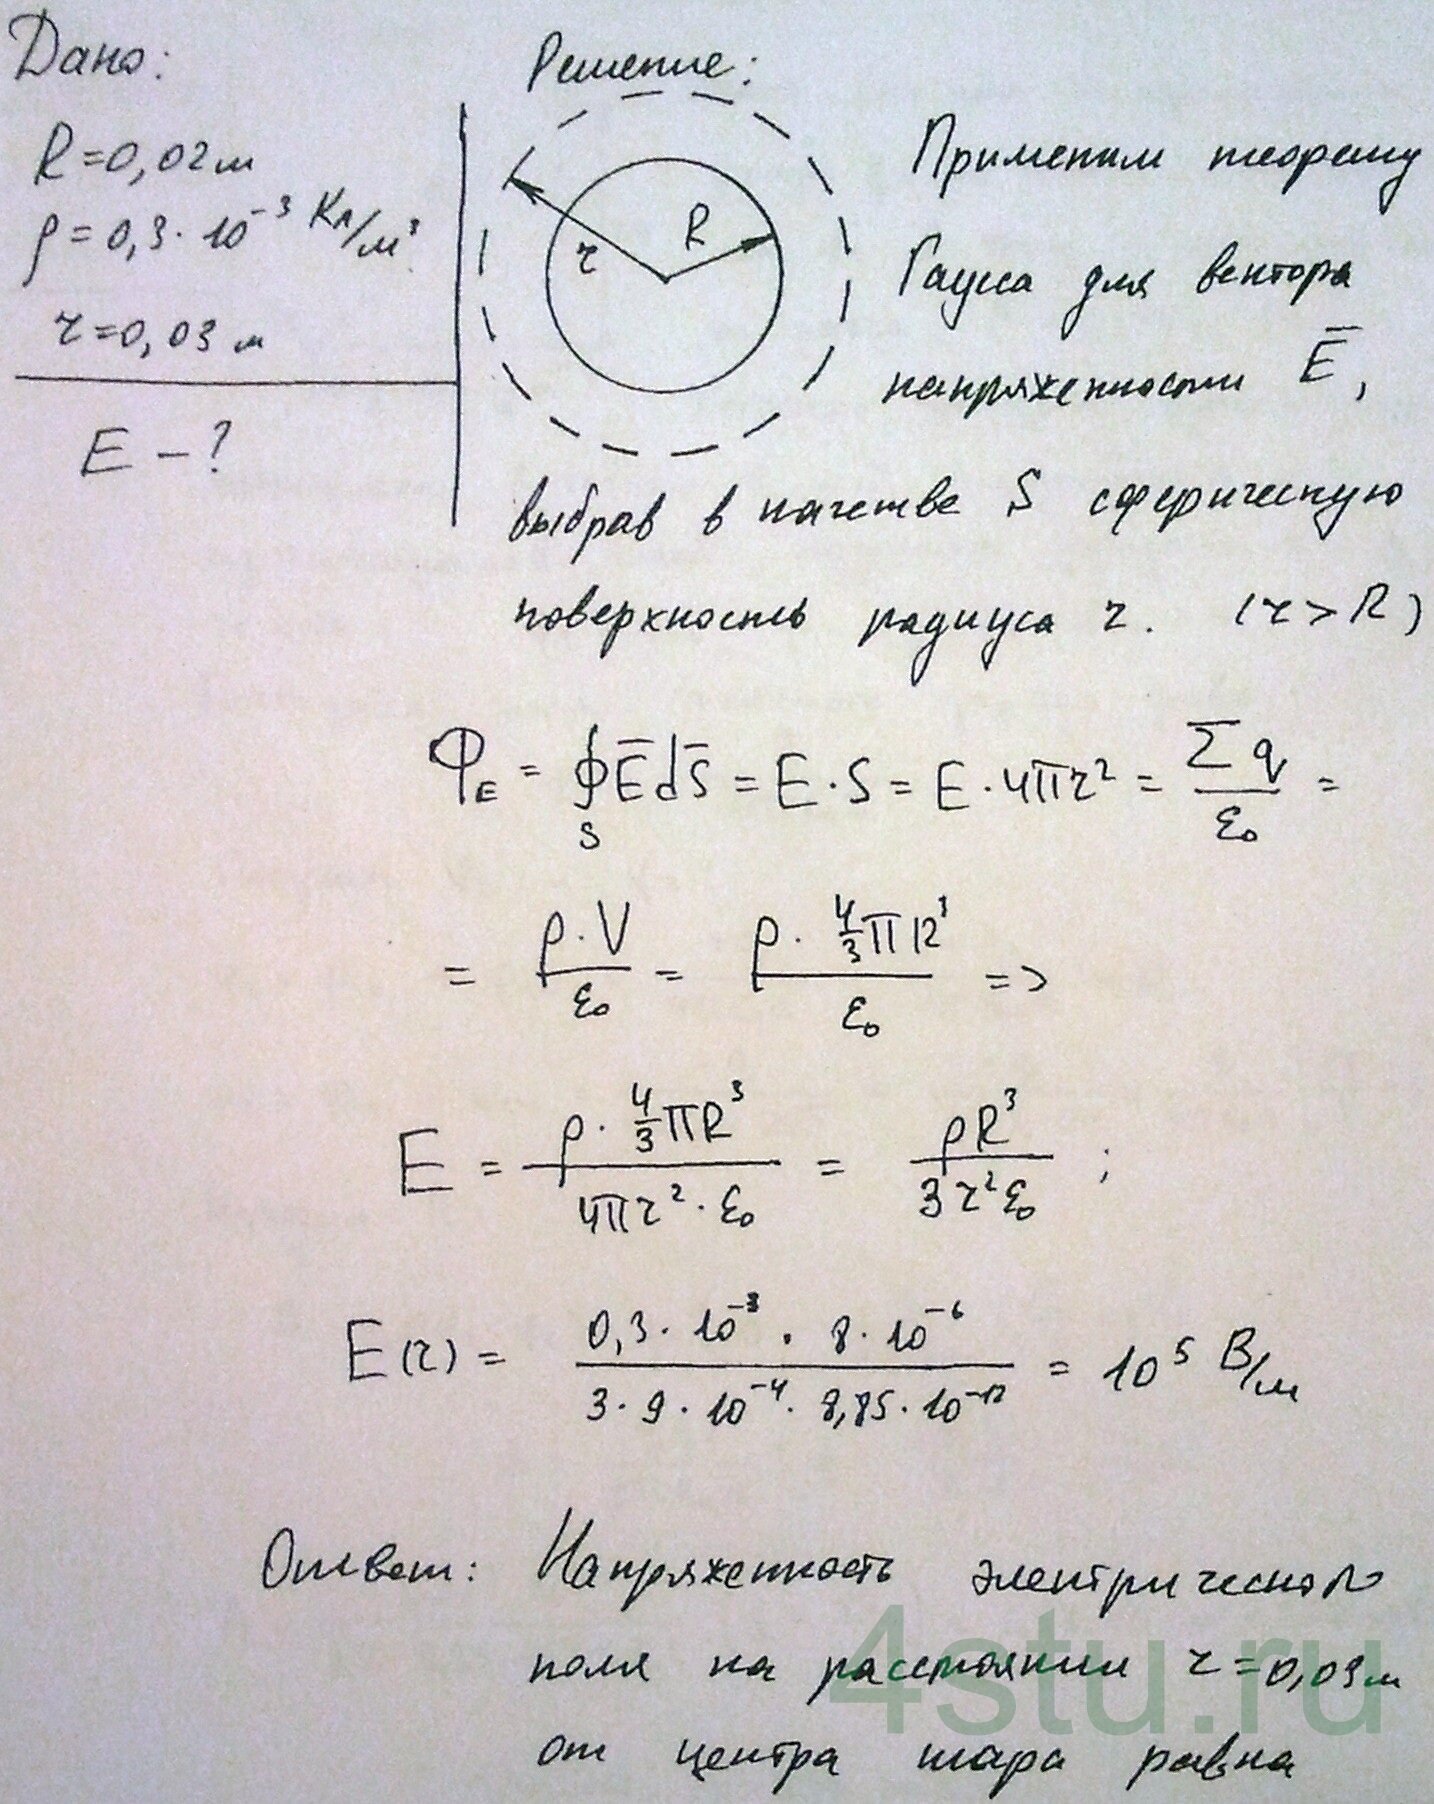 Дано:
R=0,02 м
ρ=0,3·10⁻³ Кл/м³
r=0,03 м
E – ?
Решение:
r R
Применим теорему
Гаусса для вектора
напряженности E̅,
выбрав в качестве S сферическую
поверхность радиуса r. (r>R)
Φ_E = ∮_S E̅dS̅ = E·S = E·4πr² = Σq/ε₀ =
= ρ·V/ε₀ = ρ·4/3πR³/ε₀ =>
E = ρ·4/3πR³/4πr²·ε₀ = ρR³/3r²ε₀ ;
E(r) = 0,3·10⁻³·8·10⁻⁶/3·9·10⁻⁴·8,85·10⁻¹² = 10⁵ В/м
Ответ: Напряженность электрического
поля на расстоянии r=0,03м
от центра шара равна
4stu.ru